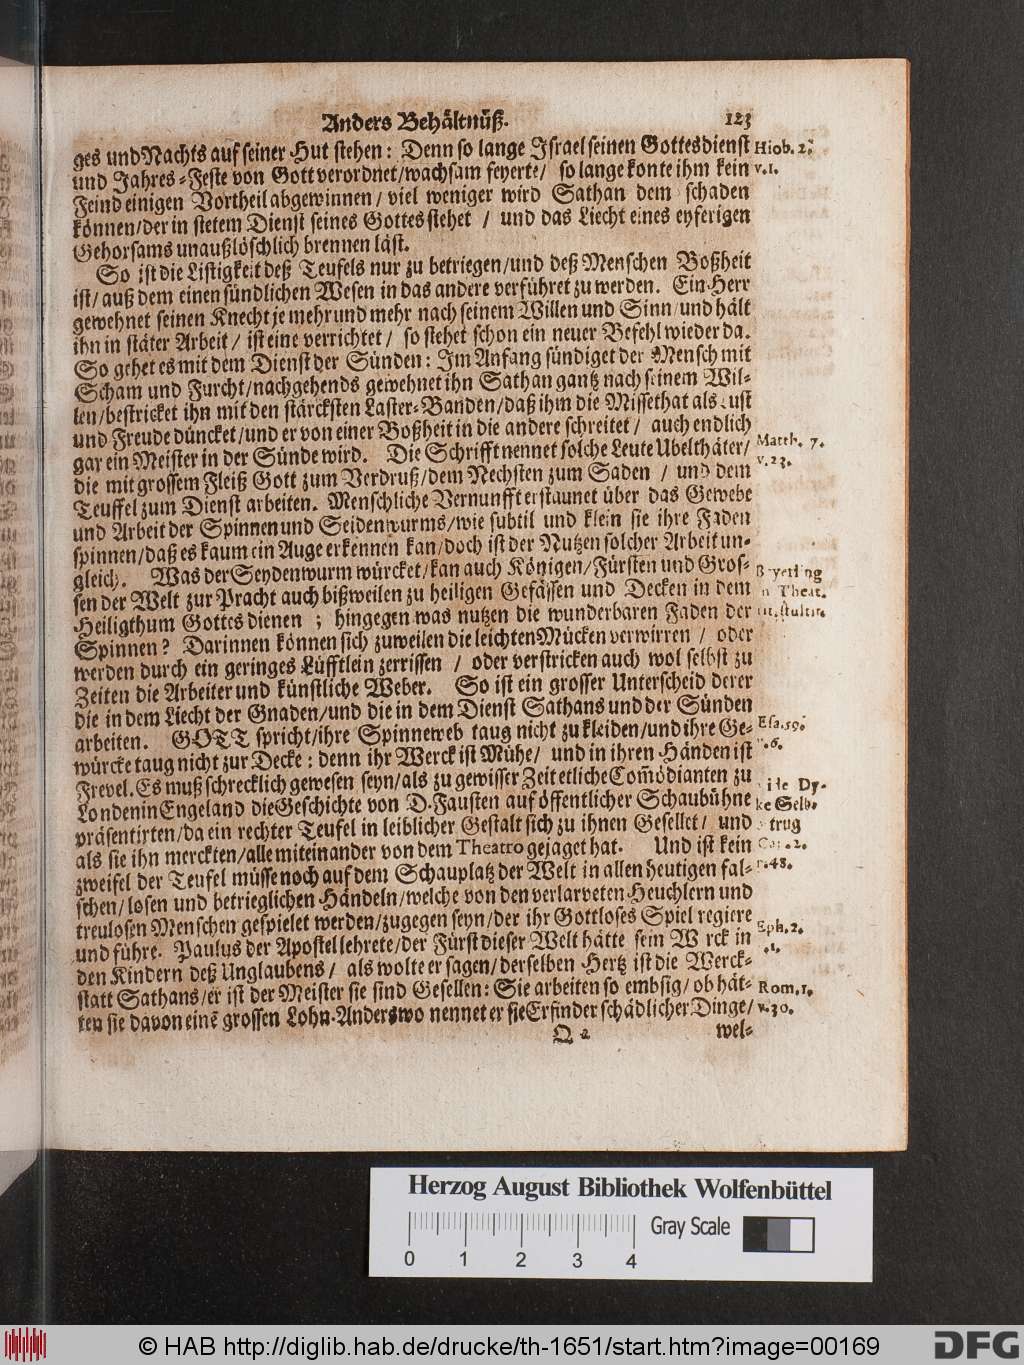 Anders Behältnüß. 123
ges und Nachts auf seiner Hut stehen: Denn so lange Israel seinen Gottesdienst
und Jahres-Feste von Gott verordnet/wachsam feyerte/ so lange konte ihm kein
Feind einigen Vortheil abgewinnen/ viel weniger wird Sathan dem schaden
können/der in stetem Dienst seines Gottes stehet / und das Liecht eines eyferigen
Gehorsams unaußlöschlich brennen läst.
So ist die Listigkeit deß Teufels nur zu betriegen/und deß Menschen Boßheit
ist/ auß dem einen sündlichen Wesen in das andere verführet zu werden. Ein Herr
gewehnet seinen Knecht je mehr und mehr nach seinem Willen und Sinn/und hält
ihn in stäter Arbeit/ ist eine verrichtet/ so stehet schon ein neuer Befehl wieder da.
So gehet es mit dem Dienst der Sünden: Im Anfang sündiget der Mensch mit
Scham und Furcht/nachgehends gewehnet ihn Sathan gantz nach seinem Wil-
len/bestricket ihn mit den stärcksten Laster-Banden/daß ihm die Missethat als Lust
und Freude düncket/und er von einer Boßheit in die andere schreitet/ auch endlich
gar ein Meister in der Sünde wird. Die Schrifft nennet solche Leute Ubelthäter/
die mit grossem Fleiß Gott zum Verdruß/dem Nechsten zum Saden / und dem
Teuffel zum Dienst arbeiten. Menschliche Vernunfft erstaunet über das Gewebe
und Arbeit der Spinnen und Seidenwurms/wie subtil und klein sie ihre Faden
spinnen/daß es kaum ein Auge erkennen kan/doch ist der Nutzen solcher Arbeit un-
gleich. Was der Seydenwurm würcket/kan auch Königen/Fürsten und Gros-
sen der Welt zur Pracht auch bißweilen zu heiligen Gefässen und Decken in dem
Heiligthum Gottes dienen ; hingegen was nutzen die wunderbaren Faden der
Spinnen? Darinnen können sich zuweilen die leichten Mücken verwirren / oder
werden durch ein geringes Lüfftlein zerrissen / oder verstricken auch wol selbst zu
Zeiten die Arbeiter und künstliche Weber. So ist ein grosser Unterscheid derer
die in dem Liecht der Gnaden/und die in dem Dienst Sathans und der Sünden
arbeiten. GOTT spricht/ihre Spinneweb taug nicht zu kleiden/und ihre Ge-
würcke taug nicht zur Decke: denn ihr Werck ist Mühe/ und in ihren Händen ist
Frevel. Es muß schrecklich gewesen seyn/als zu gewisser Zeit etliche Comödianten zu
Londen in Engeland die Geschichte von D. Fausten auf öffentlicher Schaubühne
präsentirten/da ein rechter Teufel in leiblicher Gestalt sich zu ihnen Gesellet/ und
als sie ihn merckten/alle miteinander von dem Theatro gejaget hat. Und ist kein
zweifel der Teufel müsse noch auf dem Schauplatz der Welt in allen heutigen fal-
schen/losen und betrieglichen Händeln/welche von den verlarveten Heuchlern und
treulosen Menschen gespielet werden/zugegen seyn/der ihr Gottloses Spiel regiere
und führe. Paulus der Apostel lehrete/der Fürst dieser Welt hätte sein W rck in
den Kindern deß Unglaubens/ als wolte er sagen/derselben Hertz ist die Werck-
statt Sathans/er ist der Meister sie sind Gesellen: Sie arbeiten so embsig/ob hät-
ten sie davon einē grossen Lohn. Anderswo nennet er sie Erfinder schädlicher Dinge/
Q 2 wel-
Hiob. 2.
v.1.
Matth. 7.
v.23.
Theat.
Esa. 59.
v.6.
Dy-
ke Selb-
trug
v.48.
Eph. 2.
Rom. 1.
v.30.
Herzog August Bibliothek Wolfenbüttel
0 1 2 3 4
Gray Scale
© HAB http://diglib.hab.de/drucke/th-1651/start.htm?image=00169
DFG